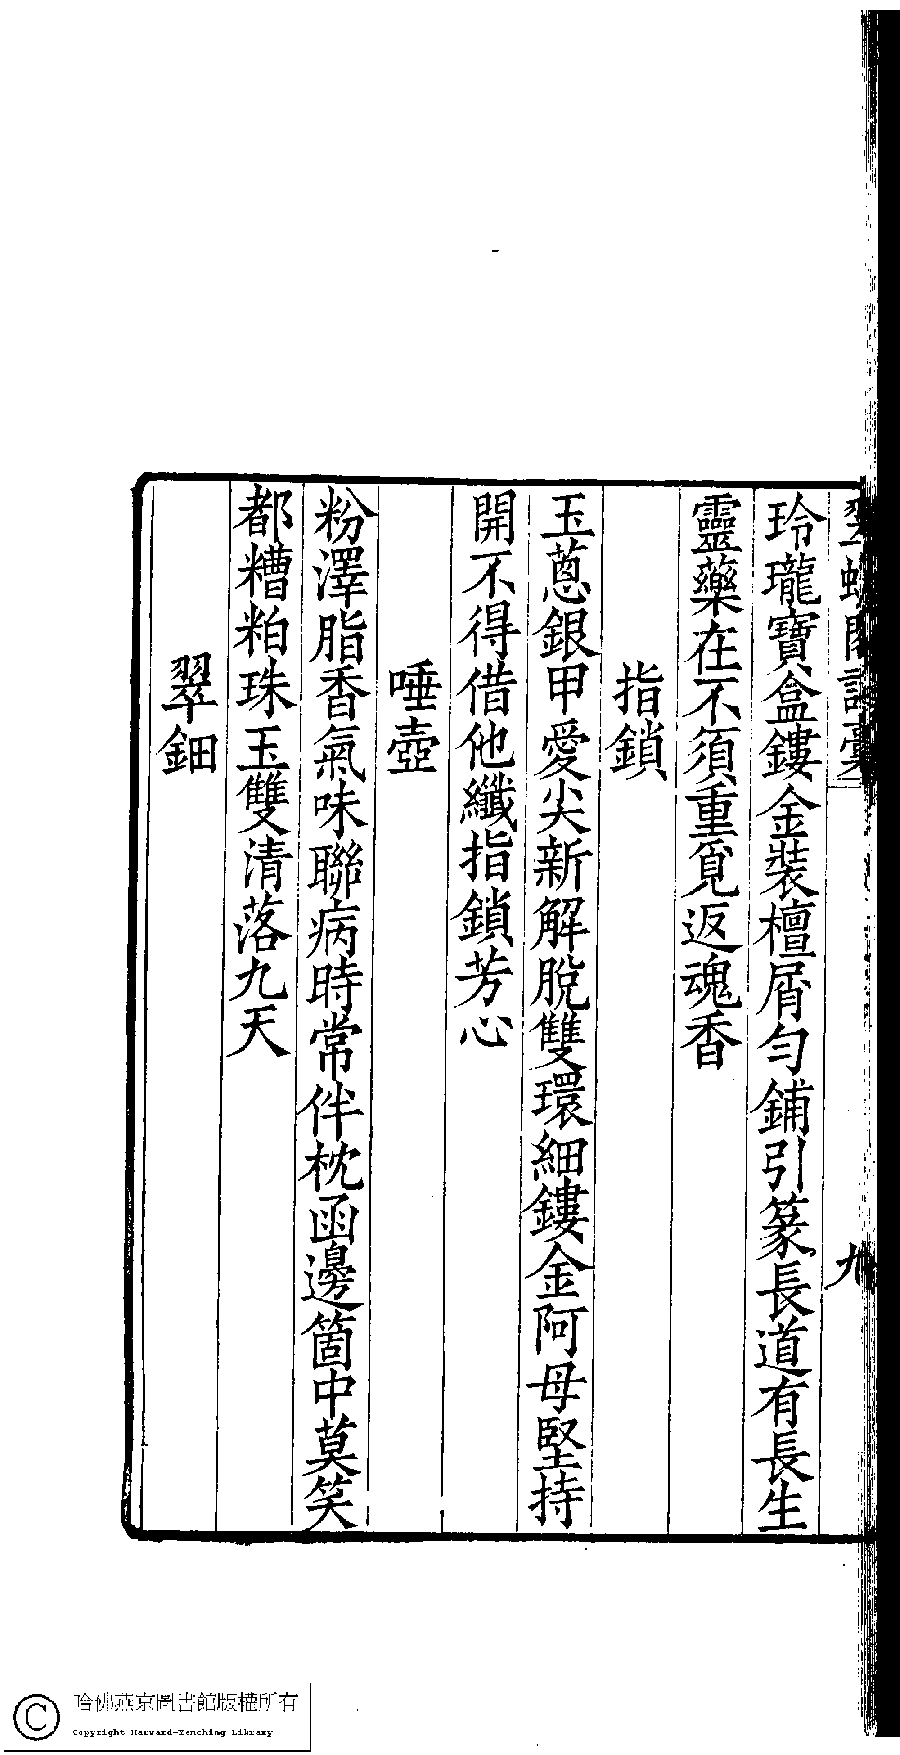 玲瓏寶盒鏤金裝檀屑勻鋪引篆長道有長生
靈藥在不須重覓返魂香
指鎖
玉蔥銀甲愛尖新解脫雙環細鏤金阿母堅持
開不得借他纖指鎖芳心
唾壺
粉澤脂香氣味聯病時常伴枕函邊箇中莫笑
都糟粕珠玉雙清落九天
翠鈿
哈佛燕京圖書館版權所有
Copyright Harvard-Yenching Library